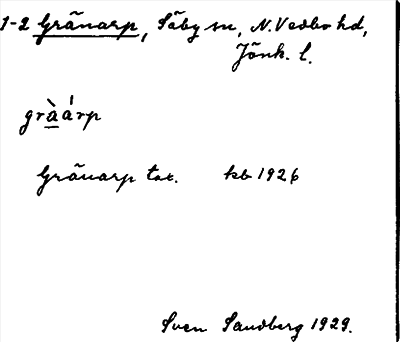 1-2 Gränarp, Säby sn, N. Vedbo hd,
Jönk. l.
gràárp
Gränarp tax. kb 1926
Sven Sandberg 1929.